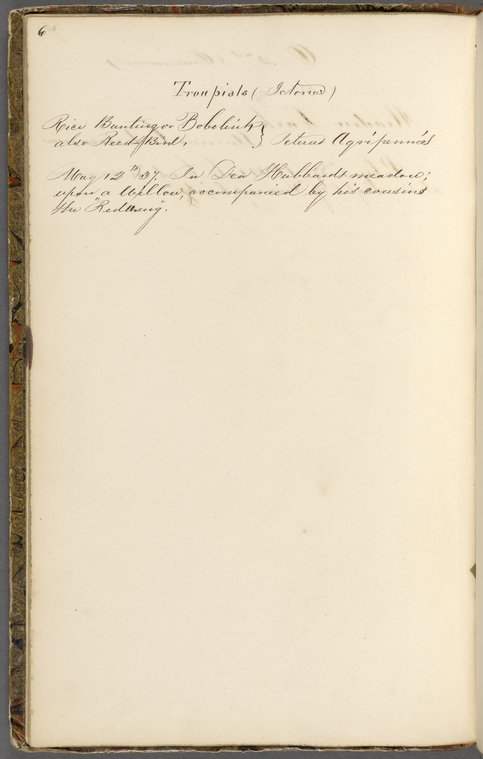 6
Troupials (Icterus)
Rice Bunting or Bobolink }
also Reed-Bird, Icterus Agripennis
May 12th 37. In Dea Hubbard's meadow;
upon a willow, accompanied by his cousins
the "Redwing".